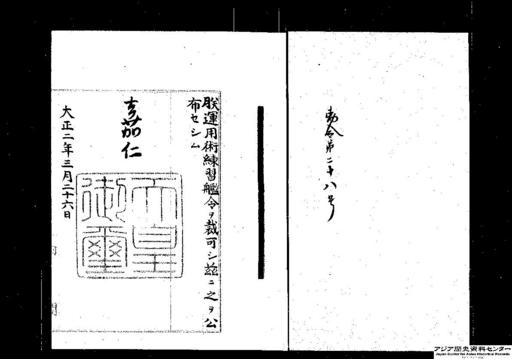 勅令第二十八号
朕運用術練習艦令ヲ裁可シ茲ニ之ヲ公
布セシム
嘉仁
天皇
御璽
大正二年三月二十六日
アジア歴史資料センター
Japan Center for Asian Historical Records